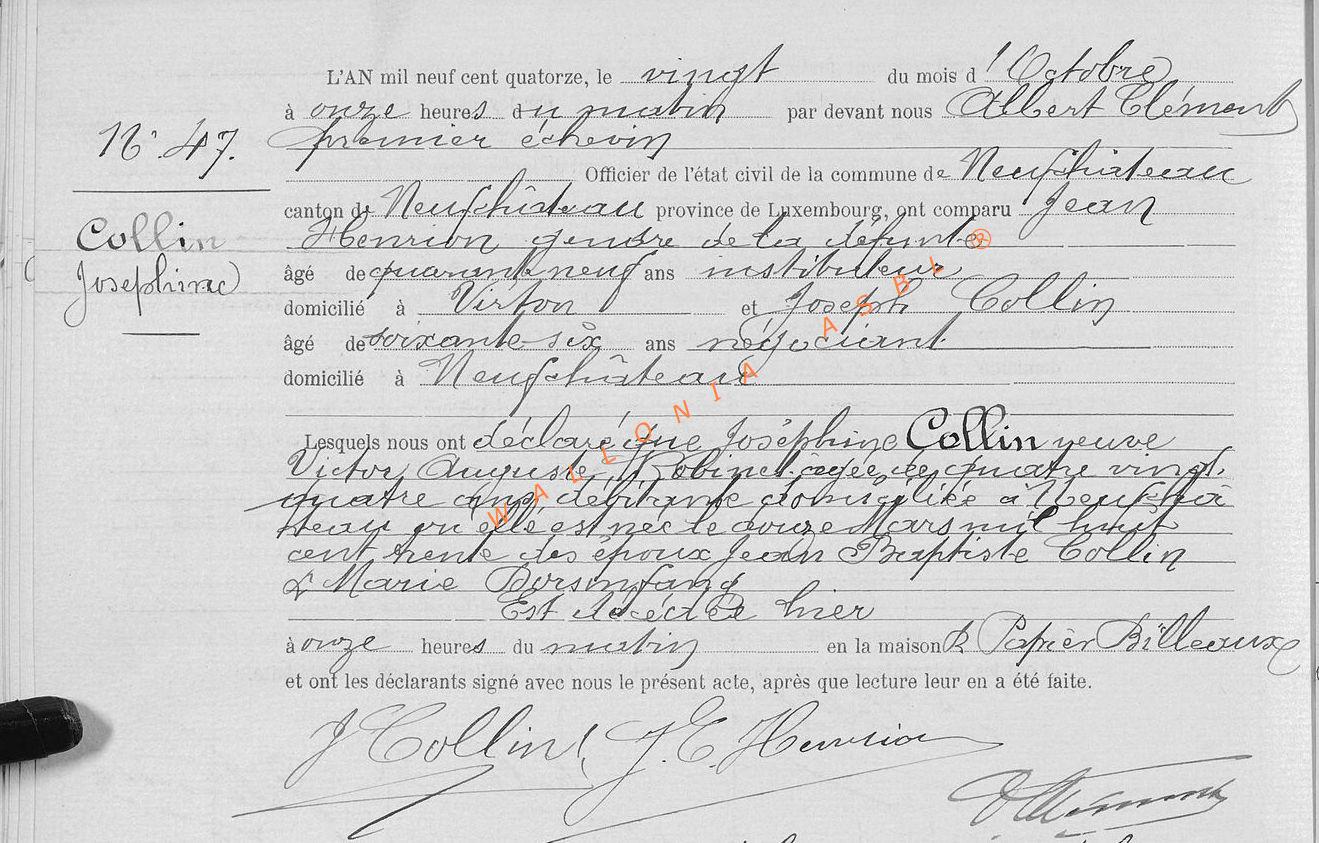 L'AN mil neuf cent quatorze, le vingt du mois d'Octobre
à onze heures du matin par devant nous Albert Clément
premier échevin
N° 47.
Officier de l'état civil de la commune de Neufchâteau
canton de Neufchâteau province de Luxembourg, ont comparu Jean
Collin
Joséphine
Henrion gendre de la défunte
âgé de quarante neuf ans instituteur
domicilié à Virton et Joseph Collin
âgé de soixante six ans négociant
domicilié à Neufchâteau
Lesquels nous ont déclaré que Joséphine Collin veuve
Victor Auguste Robinet âgée de quatre vingt
quatre ans débitante domiciliée à Neufchâ
teau qu'elle est née le douze Mars mil huit
cent trente des époux Jean Baptiste Collin
& Marie
Est décédée hier
à onze heures du matin en la maison R Papier Billeaux
et ont les déclarants signé avec nous le présent acte, après que lecture leur en a été faite.
J Collin J. E. Henrion
WALLONIA ASBL ®